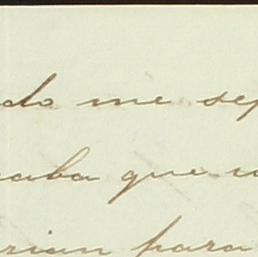 do me sep
aba que
rian para